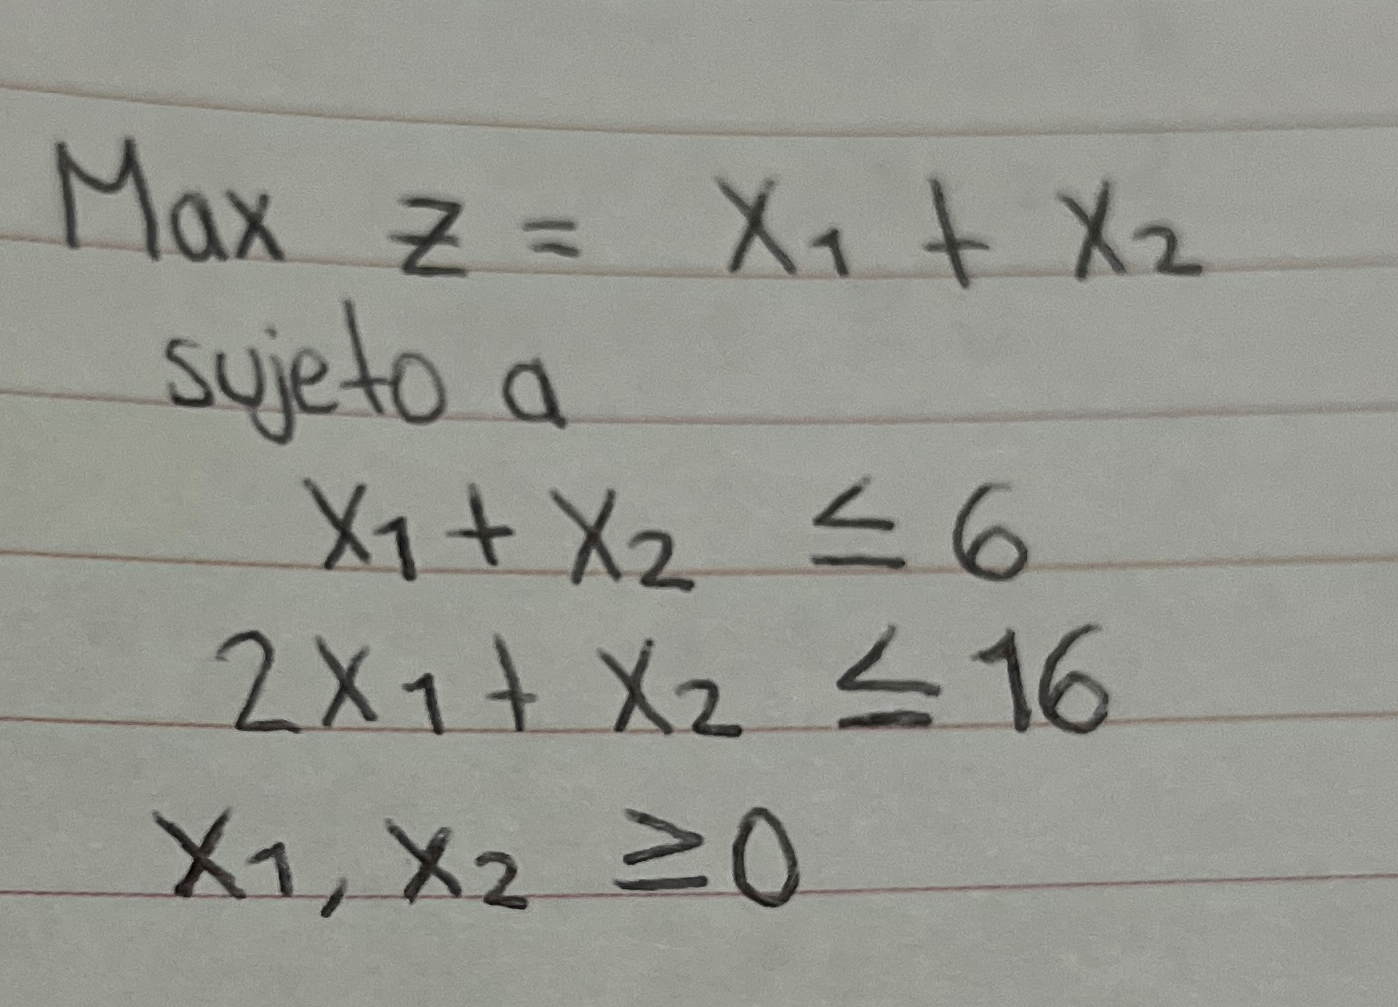 Max z = x₁ + x₂
sujeto a
x₁ + x₂ ≤ 6
2x₁ + x₂ ≤ 16
x₁, x₂ ≥ 0